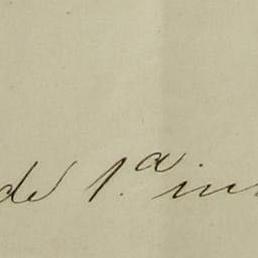 de 1.ª in